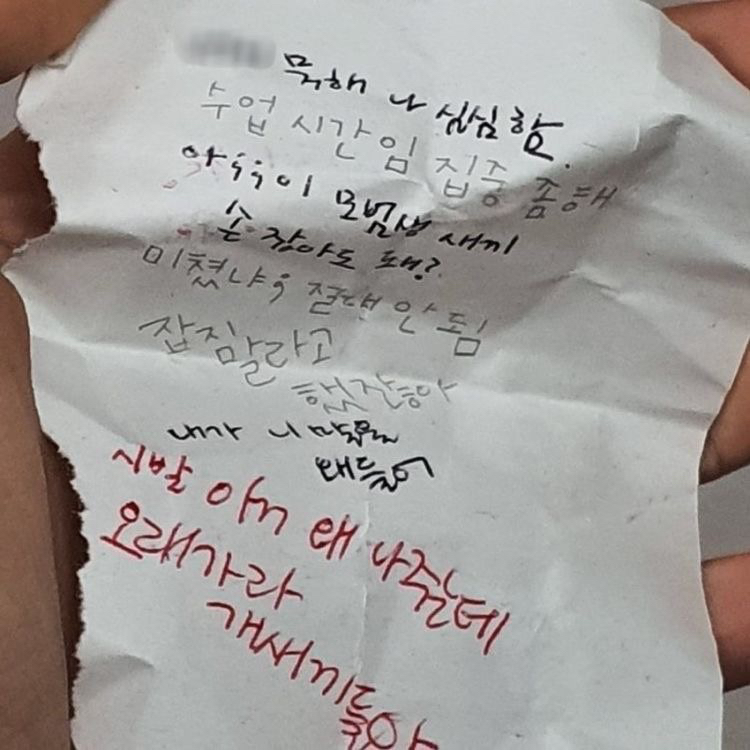 뭐해 나 심심함.
수업 시간임 집중 좀해
아;;이 모범생 새끼
손 잡아도 돼?
미쳤냐; 절대 안 됨
잡지말라고
했잖아
내가 니 말을
왜들어
시발 아니 왜
오래가라
개새끼들아